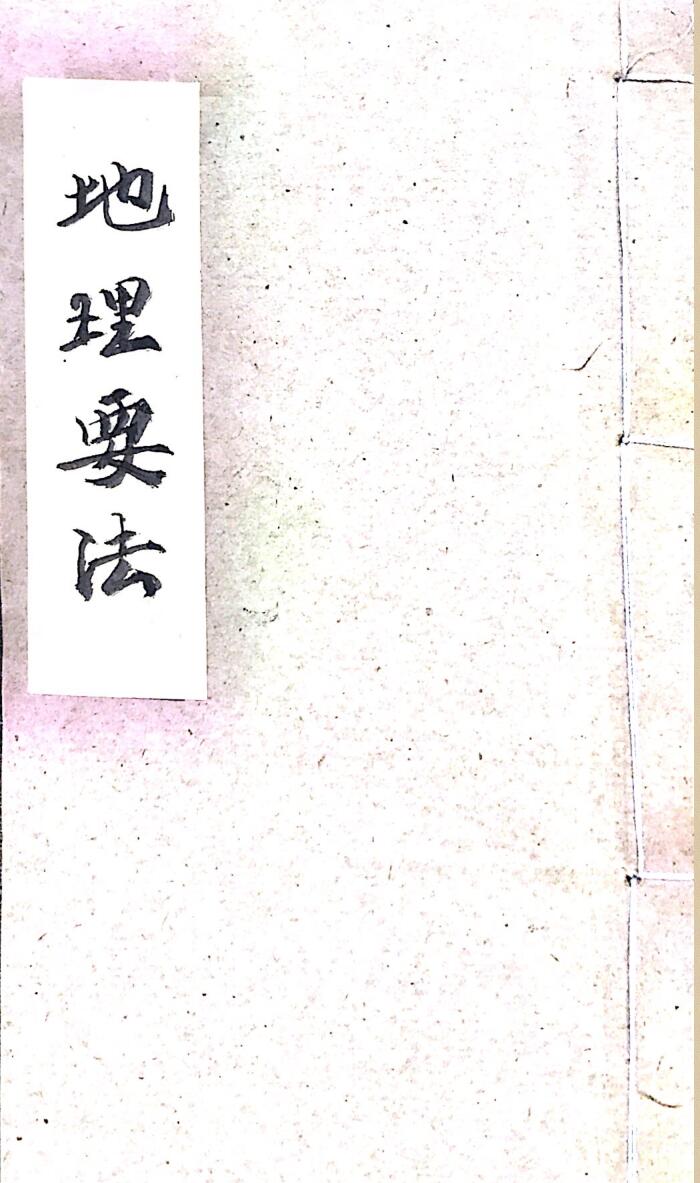 地理要法